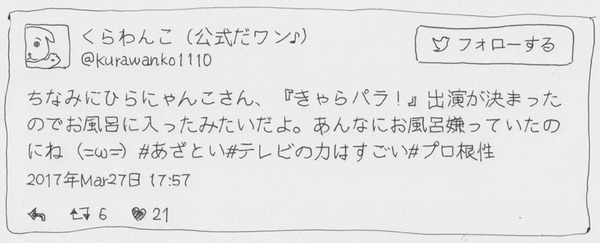 くらわんこ（公式だワン♪）
@kurawanko1110
フォローする
ちなみにひらにゃんこさん、『きゃらパラ！』出演が決まった
のでお風呂に入ったみたいだよ。あんなにお風呂嫌っていたの
にね（=ω=）#あざとい#テレビの力はすごい#プロ根性
2017年Mar27日 17:57
6 21